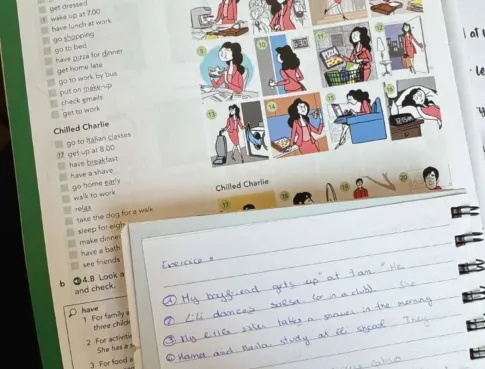 get dressed
1 wake up at 7.00
have lunch at work
go shopping
go to bed
have pizza for dinner
get home late
go to work by bus
put on make-up
check emails
get to work
Chilled Charlie
go to Italian classes
17 get up at 8.00
have breakfast
have a shave
go home early
walk to work
relax
take the dog for a walk
sleep for
make dinner
have a bath
see friends
b 4.8 Look a
and check.
have
1 For family
three child
2 For activiti
She has a s
3 For food a
9
10
11
12
13
14
15
16
Chilled Charlie
17
18
19
20
Exercice
① My boyfriend gets up at 7 am He
② Lili dances salsa in a club She
③ My little sister takes a shower in the morning
④ and study at school They